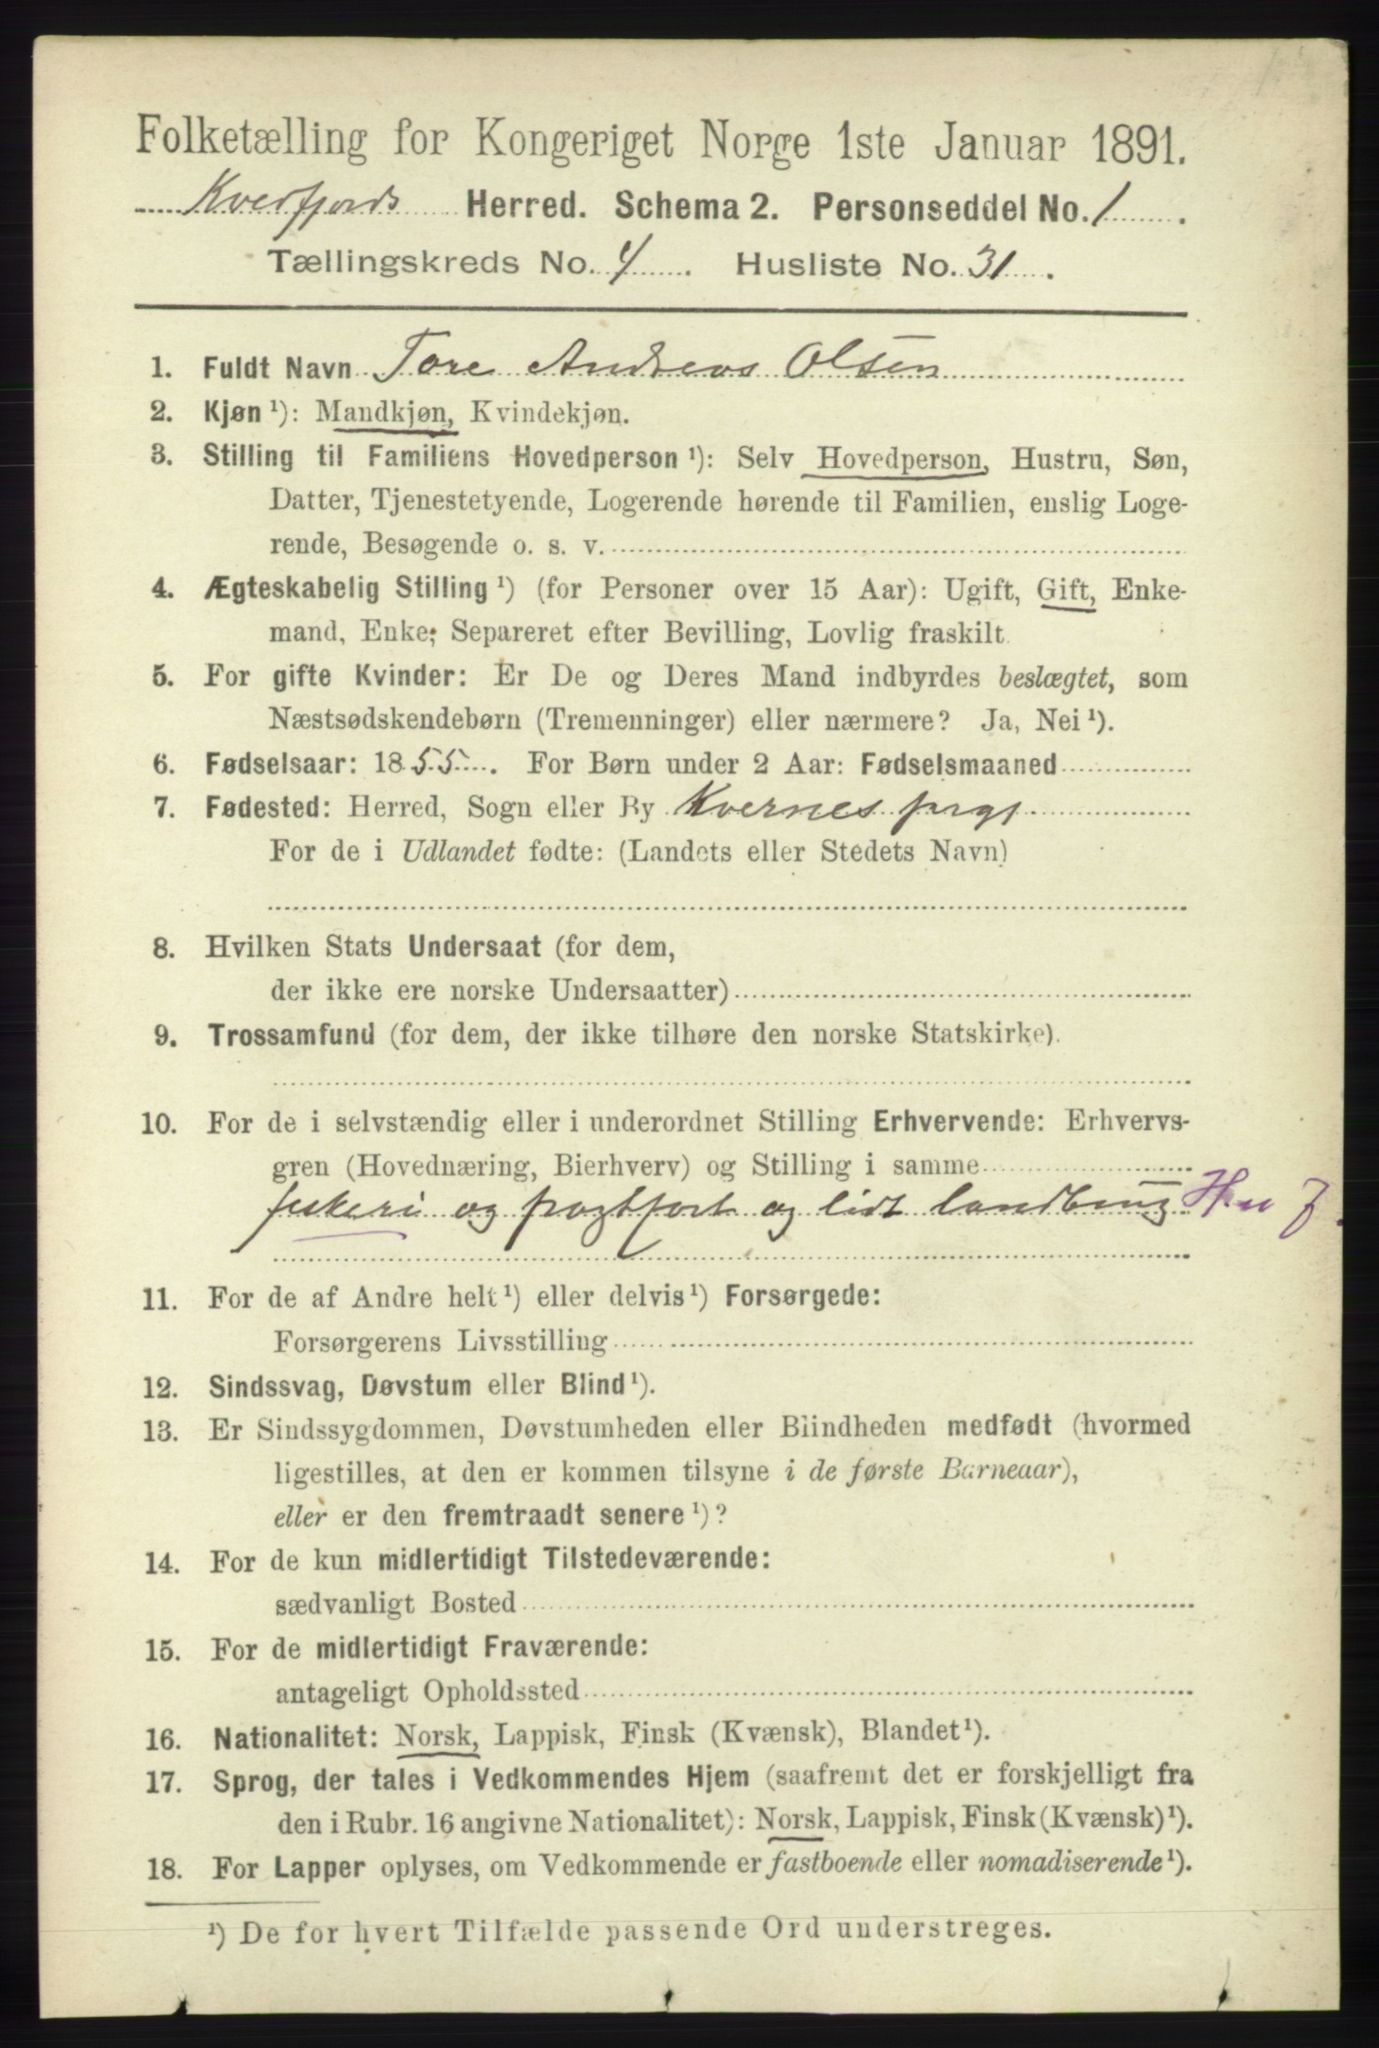 Folketælling for Kongeriget Norge 1ste Januar 1891.
Kvedfjords Herred. Schema 2. Personseddel No. 1.
Tællingskreds No. 4. Husliste No. 31.
1. Fuldt Navn Tore Andreas Olsen
2. Kjøn ¹): Mandkjøn, Kvindekjøn.
3. Stilling til Familiens Hovedperson ¹): Selv Hovedperson, Hustru, Søn,
Datter, Tjenestetyende, Logerende hørende til Familien, enslig Loge-
rende, Besøgende o. s. v.
4. Ægteskabelig Stilling ¹) (for Personer over 15 Aar): Ugift, Gift, Enke-
mand, Enke; Separeret efter Bevilling, Lovlig fraskilt
5. For gifte Kvinder: Er De og Deres Mand indbyrdes beslægtet, som
Næstsødskendebørn (Tremenninger) eller nærmere? Ja, Nei ¹).
6. Fødselsaar: 1855. For Børn under 2 Aar: Fødselsmaaned
7. Fødested: Herred, Sogn eller By Kvernes prgj
For de i Udlandet fødte: (Landets eller Stedets Navn)
8. Hvilken Stats Undersaat (for dem,
der ikke ere norske Undersaatter)
9. Trossamfund (for dem, der ikke tilhøre den norske Statskirke).
10. For de i selvstændig eller i underordnet Stilling Erhvervende: Erhvervs-
gren (Hovednæring, Bierhverv) og Stilling i samme
fiskeri og fragtfart og lidt landbrug
11. For de af Andre helt ¹) eller delvis ¹) Forsørgede:
Forsørgerens Livsstilling
12. Sindssvag, Døvstum eller Blind ¹).
13. Er Sindssygdommen, Døvstumheden eller Blindheden medfødt (hvormed
ligestilles, at den er kommen tilsyne i de første Barneaar),
eller er den fremtraadt senere ¹)?
14. For de kun midlertidigt Tilstedeværende:
sædvanligt Bosted
15. For de midlertidigt Fraværende:
antageligt Opholdssted
16. Nationalitet: Norsk, Lappisk, Finsk (Kvænsk), Blandet ¹).
17. Sprog, der tales i Vedkommendes Hjem (saafremt det er forskjelligt fra
den i Rubr. 16 angivne Nationalitet): Norsk, Lappisk, Finsk (Kvænsk) ¹).
18. For Lapper oplyses, om Vedkommende er fastboende eller nomadiserende ¹).
¹) De for hvert Tilfælde passende Ord understreges.